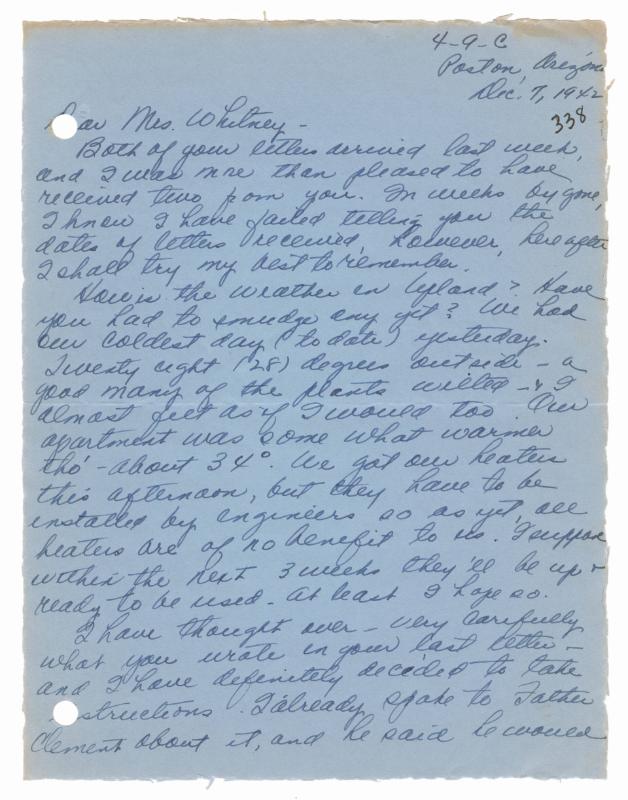 4-9-C
Poston, Arizona
Dec. 7, 1942
338
Dear Mrs. Whitney -
Both of your letters arrived last week,
and I was more than pleased to have
received two from you. In weeks by gone,
I know I have failed telling you the
dates of letters received, however, hereafter
I shall try my best to remember.
How is the weather in Upland? Have
you had to smudge any yet? We had
our coldest day (to date) yesterday.
Twenty eight (28) degrees outside - a
good many of the plants wilted - & I
almost felt as if I would too. Our
apartment was some what warmer
tho' - about 34°. We got our heaters
this afternoon, but they have to be
installed by engineers so as yet, all
heaters are of no benefit to us. I suppose
within the next 3 weeks they'll be up &
ready to be used - at least I hope so.
I have thought over - very carefully
what you wrote in your last letter -
and I have definitely decided to take
structions. I already spoke to Father
Clement about it, and he said he would